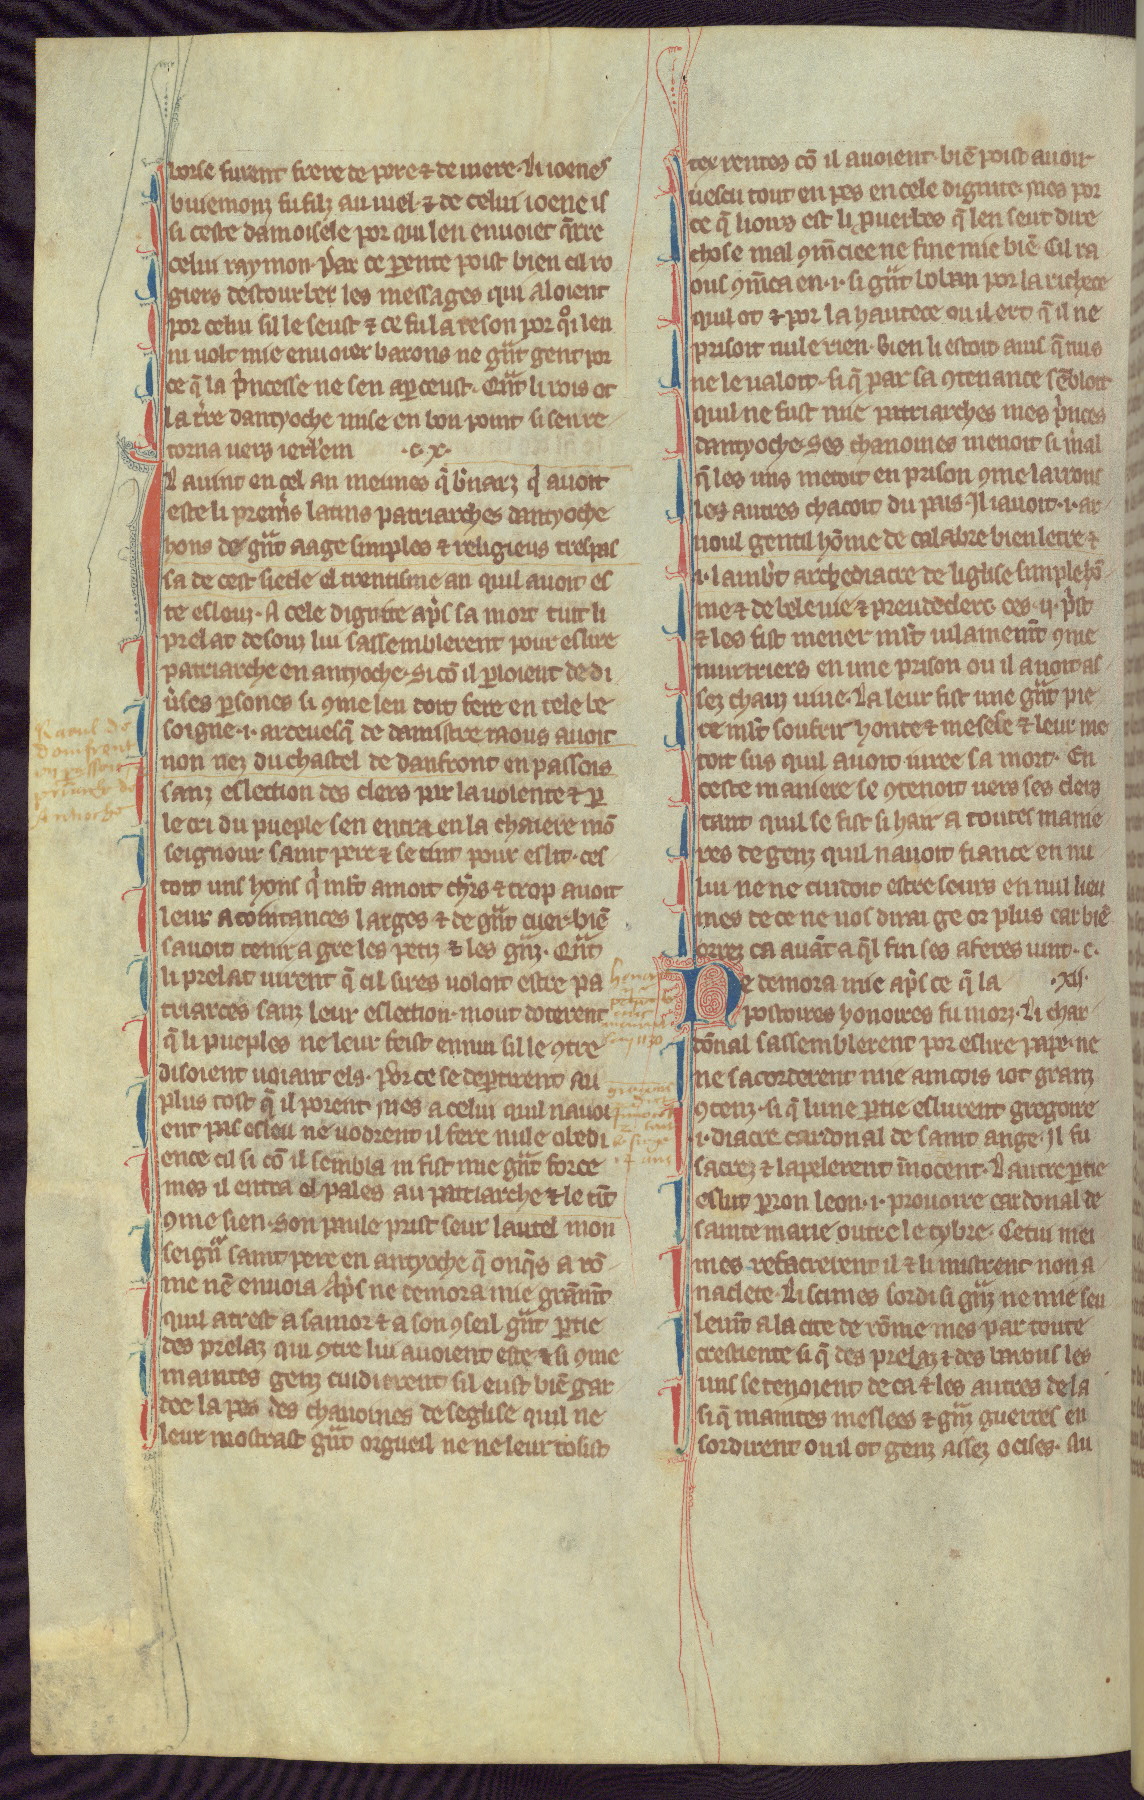 borse furent frere de pere ⁊ de mere. Li ioenes
buiemonz fu filz au viel. ⁊ de celui ioene is
si ceste damoisele por qui len enuoiet q̄rre
celui raymon. Par ce parente poist bien cil ro
giers destourber les messages qui aloient
por celui sil le seust ⁊ ce fu la reson por q̊i len
ni uolt mie enuoier barons ne gͣnt gent por
ce q̄ la p̃ncesse ne sen ap̱ceust. Qͣnt li rois ot
la t̃re dantyoche mise en bon point si sen re
torna uers ierlem .c. x.
Il auint en cel an meimes q̄ b̃narz q̇ auoit
este li premĩs latins patriarches dantyoche
hons de gͣnt aage simples ⁊ religieus trespas
sa de cest siecle el trentisme an quil auoit es
te esleuz. A cele dignite ap̃s sa mort tuit li
prelat desouz lui sassemblerent pour eslire
patriarche en antyoche. Si cō il p̱loient de di
ũses p̱sones si 9me len doit fere en tele be
soigne .i. arceuesq̄ de
non nez du chastel de danfront en passois
sanz eslection des clers par la uolente ⁊ p̱
le cri du pueple sen entra en la chaiere mō
seignour saint pere ⁊ se tint pour eslit. ces
toit uns hons q̇ ml̃t amoit ch̃rs ⁊ trop auoit
leur acointances larges ⁊ de gͣnt cuer. biē
sauoit tenir a gre les petiz ⁊ les gͣnz. Qͣnt
li prelat virent q̄ cil sires voloit estre pa
triarces sanz leur eslection. mout doterent
q̄ li pueples ne leur feist ennui sil le 9tre
disoient uoiant els. Por ce se dep̱tirent au
plus tost q̄ il porent. Mes a celui quil nauoi
ent pas esleu ne uodrent il fere nule obedi
ence cil si cō il sembla ni fist mie gͣnt force
mes il entra el pales au patriarche ⁊ le tīt
9me sien. Son paule prist seur lautel mon
seigñ saint pere en antyoche q̄ onq̄s a rō
me nē enuoia. Ap̃s ne demora mie grāmīt
quil atrest a samor ⁊ a son 9seil gͣnt p̱tie
des prelaz qui 9tre lui auoient este ⁊ si 9me
maintes genz cuidierent sil eust biē gar
dee la pes des chanoines de seglise quil ne
leur mostrast gͣnt orgueil ne ne leur tosist
lor rentes cō il auoient. biē poist auoir
uescu tout en pes en cele dignite. Mes por
ce q̄ uoirs est li p̱uerbes q̄ len seut dire
chose mal 9m̄ciee ne fine mie biē. Cil ra
ous 9m̄ca en .i. si gͣnt boban por la richece
quil ot ⁊ por la hautece ou il ert q̄ il ne
prisoit nule rien. Bien li estoit auis q̄ nus
ne le ualoit. si q̄ par sa 9tenance sēbloit
quil ne fust mie patriarches mes p̃nces
dantyoche. Ses chanoines menoit si mal
q̄ les uns metoit en prison 9me larrons
les autres chacoit du pais. Il iauoit .i. ar
noul gentil hōme de calabre bien letre ⁊
.i. lamb̃t archediacre de liglise simple hō
me ⁊ de bele uie ⁊ preudeclerc. ces .ij. p̃st
⁊ les fist mener ml̃t uilainem̄t 9me
murtriers en une prison ou il auoit as
sez chauz uiue. La leur fist une gͣnt pie
ce ml̃t soufrir honte ⁊ mesese ⁊ leur me
toit sus quil auoit iuree sa mort. En
ceste maniere se 9tenoit uers ses clers
tant quil se fist si hair a toutes manie
res de genz quil nauoit fiance en nu
lui ne ne cuidoit estre seurs en nul lieu
mes de ce ne uos dirai ge or plus car biē
orrez ca auāt a q̄l fin ses aferes vint. c.
Ne demora mie ap̃s ce q̄ la .xii.
postoires honoires fu morz. Li char
dōnal sassemblerent por eslire pape. ne
ne sacorderent mie aincois iot granz
9tenz. si q̄ lune p̱tie eslurent gregoire
.i. diacre cardonal de saint ange. Il fu
sacrez ⁊ lapelerent īnocent. Lautre p̱tie
eslut p̱ron leon .i. prouoire cardonal de
sainte marie outre le tybre. Cetui mei
mes resacrerent il ⁊ li mistrent non a
naclete. Li scimes sordi si gͣnz ne mie seu
lem̄t a la cite de rōme mes par toute
crestiente si q̄ des prelaz ⁊ des barons les
uns se tenoient de ca ⁊ les autres de la
si q̄ maintes meslees ⁊ gͣnz guerres en
sordirent ou il ot genz assez ocises. Au